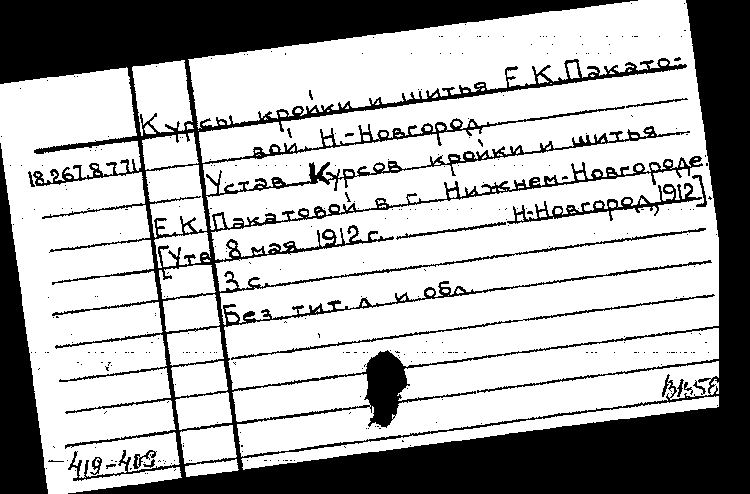 Курсы кройки и шитья Е.К.Пакато-
вой. Н.-Новгород.
18.267.8.771
Устав Курсов кройки и шитья
Е.К. Пакатовой в г. Нижнем-Новгороде.
[Утв 8 мая 1912 г. Н-Новгород, 1912].
3 с.
Без тит. л. и обл.
419-409